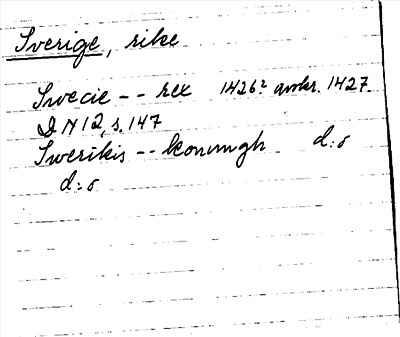 Sverige, rike
Swecie -- rex 1426? avskr. 1427
DN 12, s. 147
Swerikis -- konungh d:o
d:o